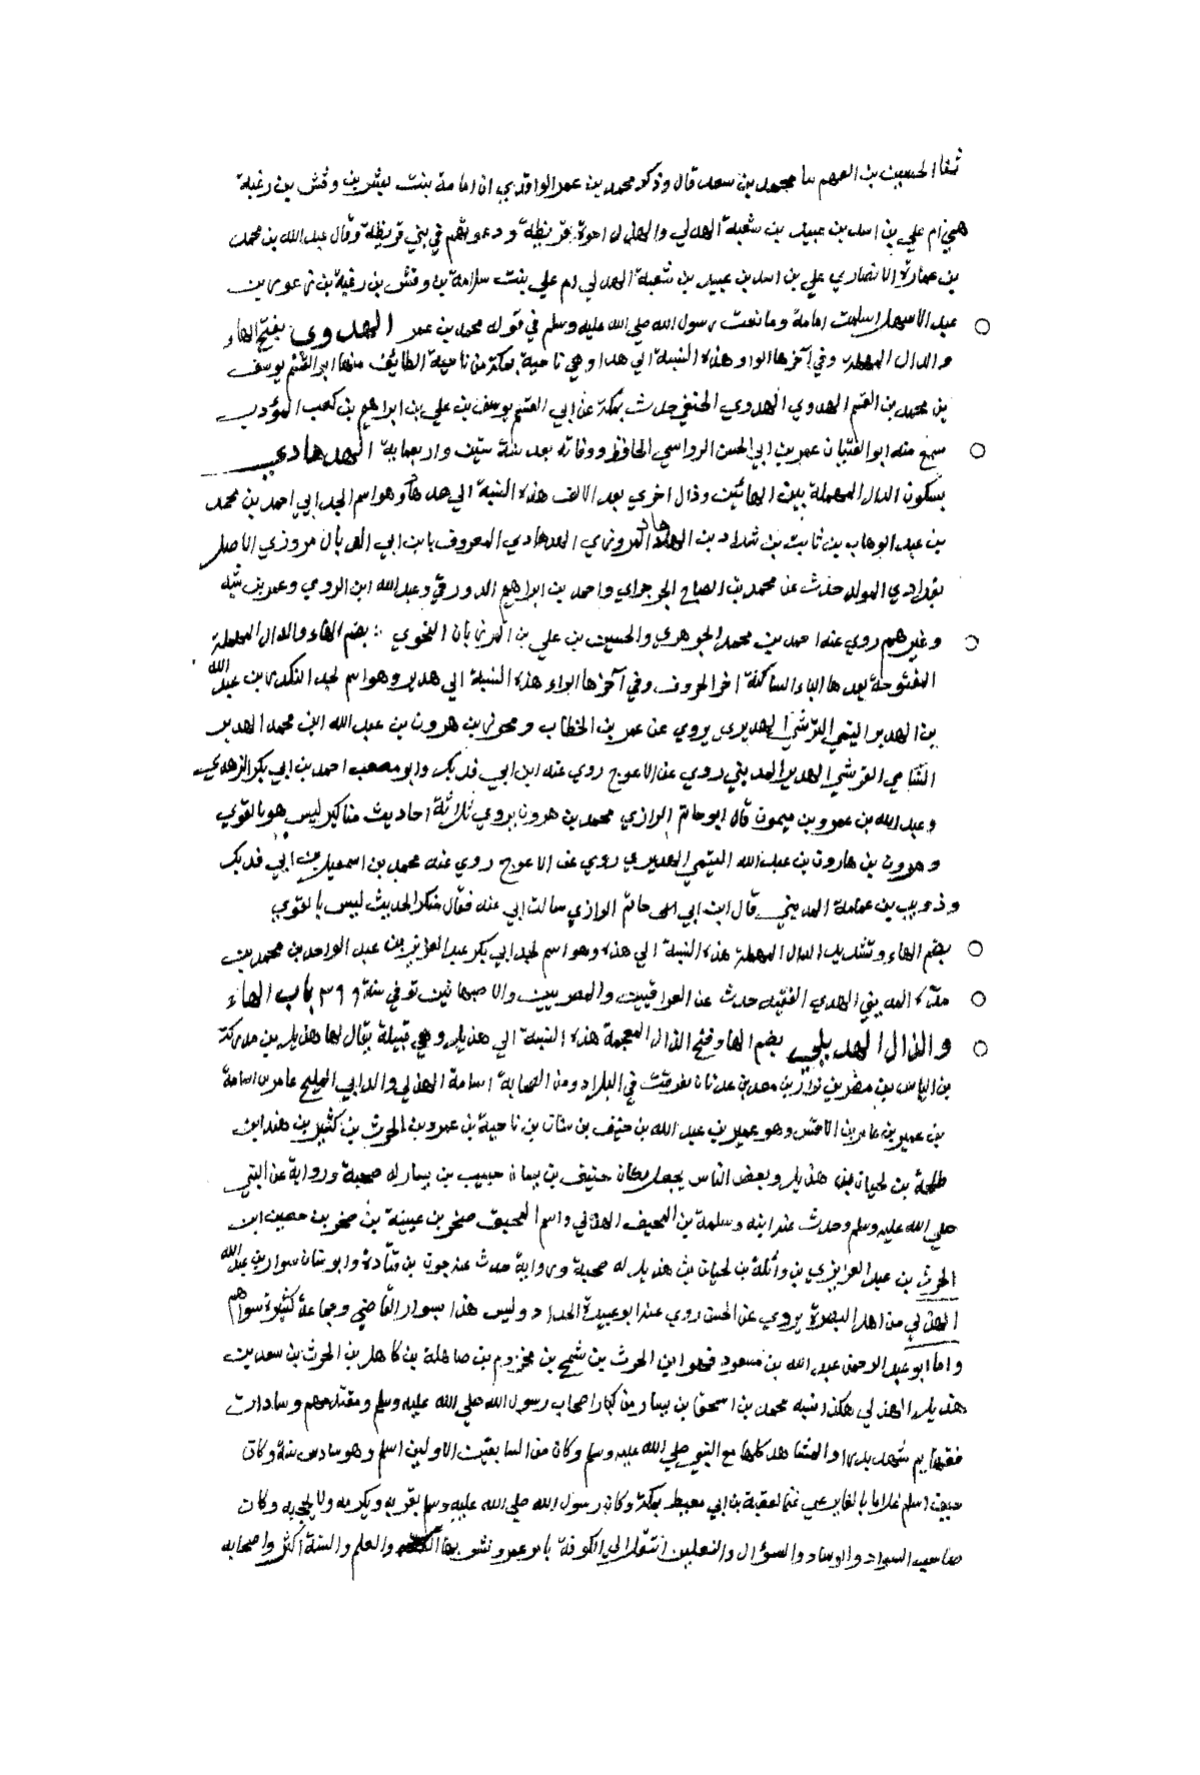 ثنا الحسين بن الفهم ثنا محمد بن سعد قال وذكر محمد بن عمر الواقدي ان امامة بنت بشر بن وقش بن زغبة
هي ام علي بن اسد بن عبيد بن شعبة الهدلي والهدل اخوة قريظة ودعوتهم في بني قريظة وقال عبد الله بن محمد
بن عمارة الانصاري علي بن اسد بن عبيد بن شعبة الهدلي ام علي بنت سلامة بن وقش بن زغبة بن زعوى بن
عبد الاشهل اسلمت امامة وبايعت رسول الله صلي الله عليه وسلم في قوله محمد بن عمر الهدوي بفتح الهاء
والدال المهملة وفي آخرها الواو هذه النسبة الي هدا وهي ناحية بمكة من ناحية الطائف منها ابو القسم يوسف
بن محمد بن القسم الهدوي الهدوي الحنفي حدث بمكة عن ابي القسم يوسف بن علي بن ابراهيم بن كعب المؤدب
سمع منه ابو الفتيان عمر بن ابي الحسن الرواسي الحافظ ووفاته بعد سنة ستين واربعماية الهدهادي
بسكون الدال المهملة بين الهائين وذال اخري بعد الالف هذه النسبة الي هدهاد وهو اسم لجد ابي احمد بن محمد
بن عبد الوهاب بن ثابت بن شداد بن الهدهاد المروزي الهدهادي المعروف بابن ابي الذبان مروزي الاصل
بغدادي المولد حدث عن محمد بن الصباح الجرجراي واحمد بن ابراهيم الدورقي وعبد الله ابن الرومي وعمر بن شبه
وغيرهم روي عنه احمد بن محمد الجوهري والحسين بن علي بن المرزبان النحوي بضم الهاء والدال المهملة
المفتوحة بعدها الياء الساكنة اخر الحروف وفي آخرها الراء هذه النسبة الي هدير وهو اسم لجد المنكدر بن عبد الله
بن الهدير التيمي القرشي الهديري يروي عن عمر بن الخطاب ومحرز بن هرون بن عبد الله ابن محمد الهدير
الشامي القرشي الهديري المديني روي عن الاعرج روي عنه ابن ابي فديك وابو مصعب احمد بن ابي بكر الزهري
وعبد الله بن عمرو بن ميمون قال ابو حاتم الرازي محمد بن هرون يروي ثلاثة احاديث مناكير ليس هو بالقوي
وهرون بن هارون بن عبد الله التيمي الهديري روي عن الاعرج روي عنه محمد بن اسمعيل بن ابي فديك
وذويب بن عمامة المديني قال ابن ابي حاتم الرازي سالت ابي عنه فقال منكر الحديث ليس بالقوي
بضم الهاء وتشديد الدال المهملة هذه النسبة الي هدة وهو اسم لجد ابي بكر عبد العزيز بن عبد الواحد بن محمد بن
هدة المديني الهدي الفقيه حدث عن العراقيين والمصريين والاصبهانين توفي سنة ٣٦٩ باب الهاء
والذال الهذيلي بضم الهاء وفتح الذال المعجمة هذه النسبة الي هذيل وهي قبيلة يقال لها هذيل بن مدركة
بن الياس بن مضر بن نزار بن معد بن عدنان تفرقت في البلاد ومن الصحابة اسامة الهذلي والد ابي المليح عامر بن اسامة
بن عمير بن عامر بن الاقيش وهو عمير بن عبد الله بن حنيف بن سنان بن ناجية بن عمرو بن الحرث بن كثير بن هند ابن
طلحة بن لحيان بن هذيل وبعض الناس يجعل مكان حنيف بن يسار حبيب بن يسار له صحبة ورواية عن النبي
صلي الله عليه وسلم وحدث عنه ابنه وسلمة بن المحبق الهذلي واسم المحبق صخر بن عبينة بن صخر بن حصين ابن
الحرث بن عبد العزيزي بن وائلة بن لحيان بن هذيل له صحبة ورواية حدث عنه جون بن قتادة وابو سنان سوار بن عبد الله
الهذلي من اهل البصرة يروي عن الحسن روي عنه ابو عبيدة الحداد وليس هذا بسوار القاضي وجماعة كثيرة سواهم
واما ابو عبد الرحمن عبد الله بن مسعود فهو ابن الحرث بن شمخ بن مخزوم بن صاهلة بن كاهل بن الحرث بن سعد بن
هذيل الهذلي هكذا نسبه محمد بن اسحق بن يسار من كبار اصحاب رسول الله صلي الله عليه وسلم ومقدمهم وسادات
فقهايم شهد بدرا والمشاهد كلها مع النبي صلي الله عليه وسلم وكان من السابقين الاولين اسلم وهو سادس ستة وكان
حين اسلم غلاما بالغا يرعي غنما لعقبة بن ابي معيط بمكة وكان رسول الله صلي الله عليه وسلم يقربه ويكرمه ولا يحجبه وكان
صاحب السواد والوساد والسؤال والنعلين انتقل الي الكوفة بامر عمر ونشر بها والعلم والسنة اكثر واصحابه